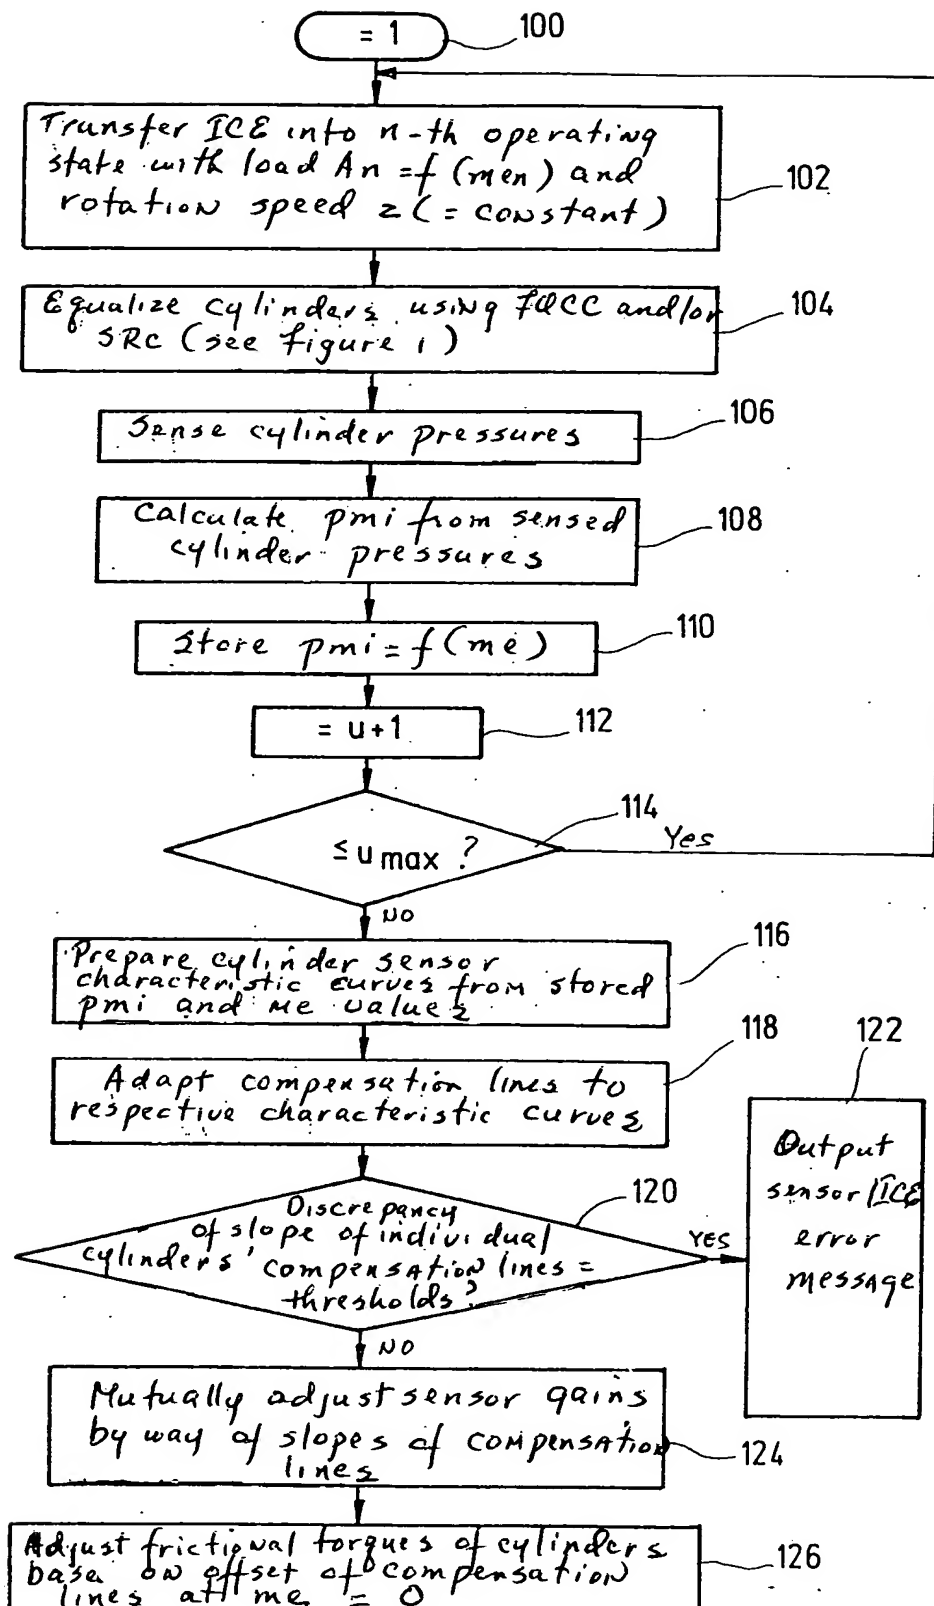 = 1
100
Transfer ICE into n-th operating
state with load An = f (men) and
rotation speed z (= constant)
102
Equalize cylinders using FQCC and/or
SRC (see figure 1)
104
Sense cylinder pressures
106
Calculate pmi from sensed
cylinder pressures
108
Store pmi = f (me)
110
= u+1
112
≤ u max ?
114
Yes
NO
Prepare cylinder sensor
characteristic curves from stored
pmi and me values
116
Adapt compensation lines to
respective characteristic curves
118
122
Output
sensor/ICE
error
message
Discrepancy
of slope of individual
cylinders' compensation lines =
thresholds?
120
YES
NO
Mutually adjust sensor gains
by way of slopes of compensation
lines
124
Adjust frictional torques of cylinders
base on offset of compensation
lines at me = 0
126